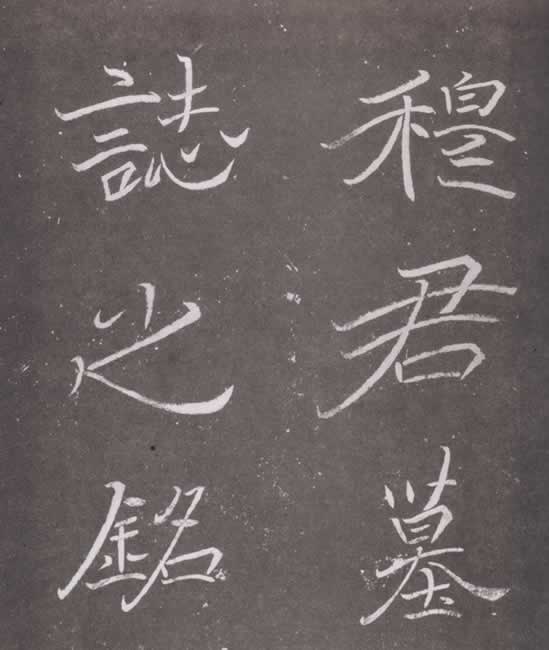 穆君墓
誌之銘